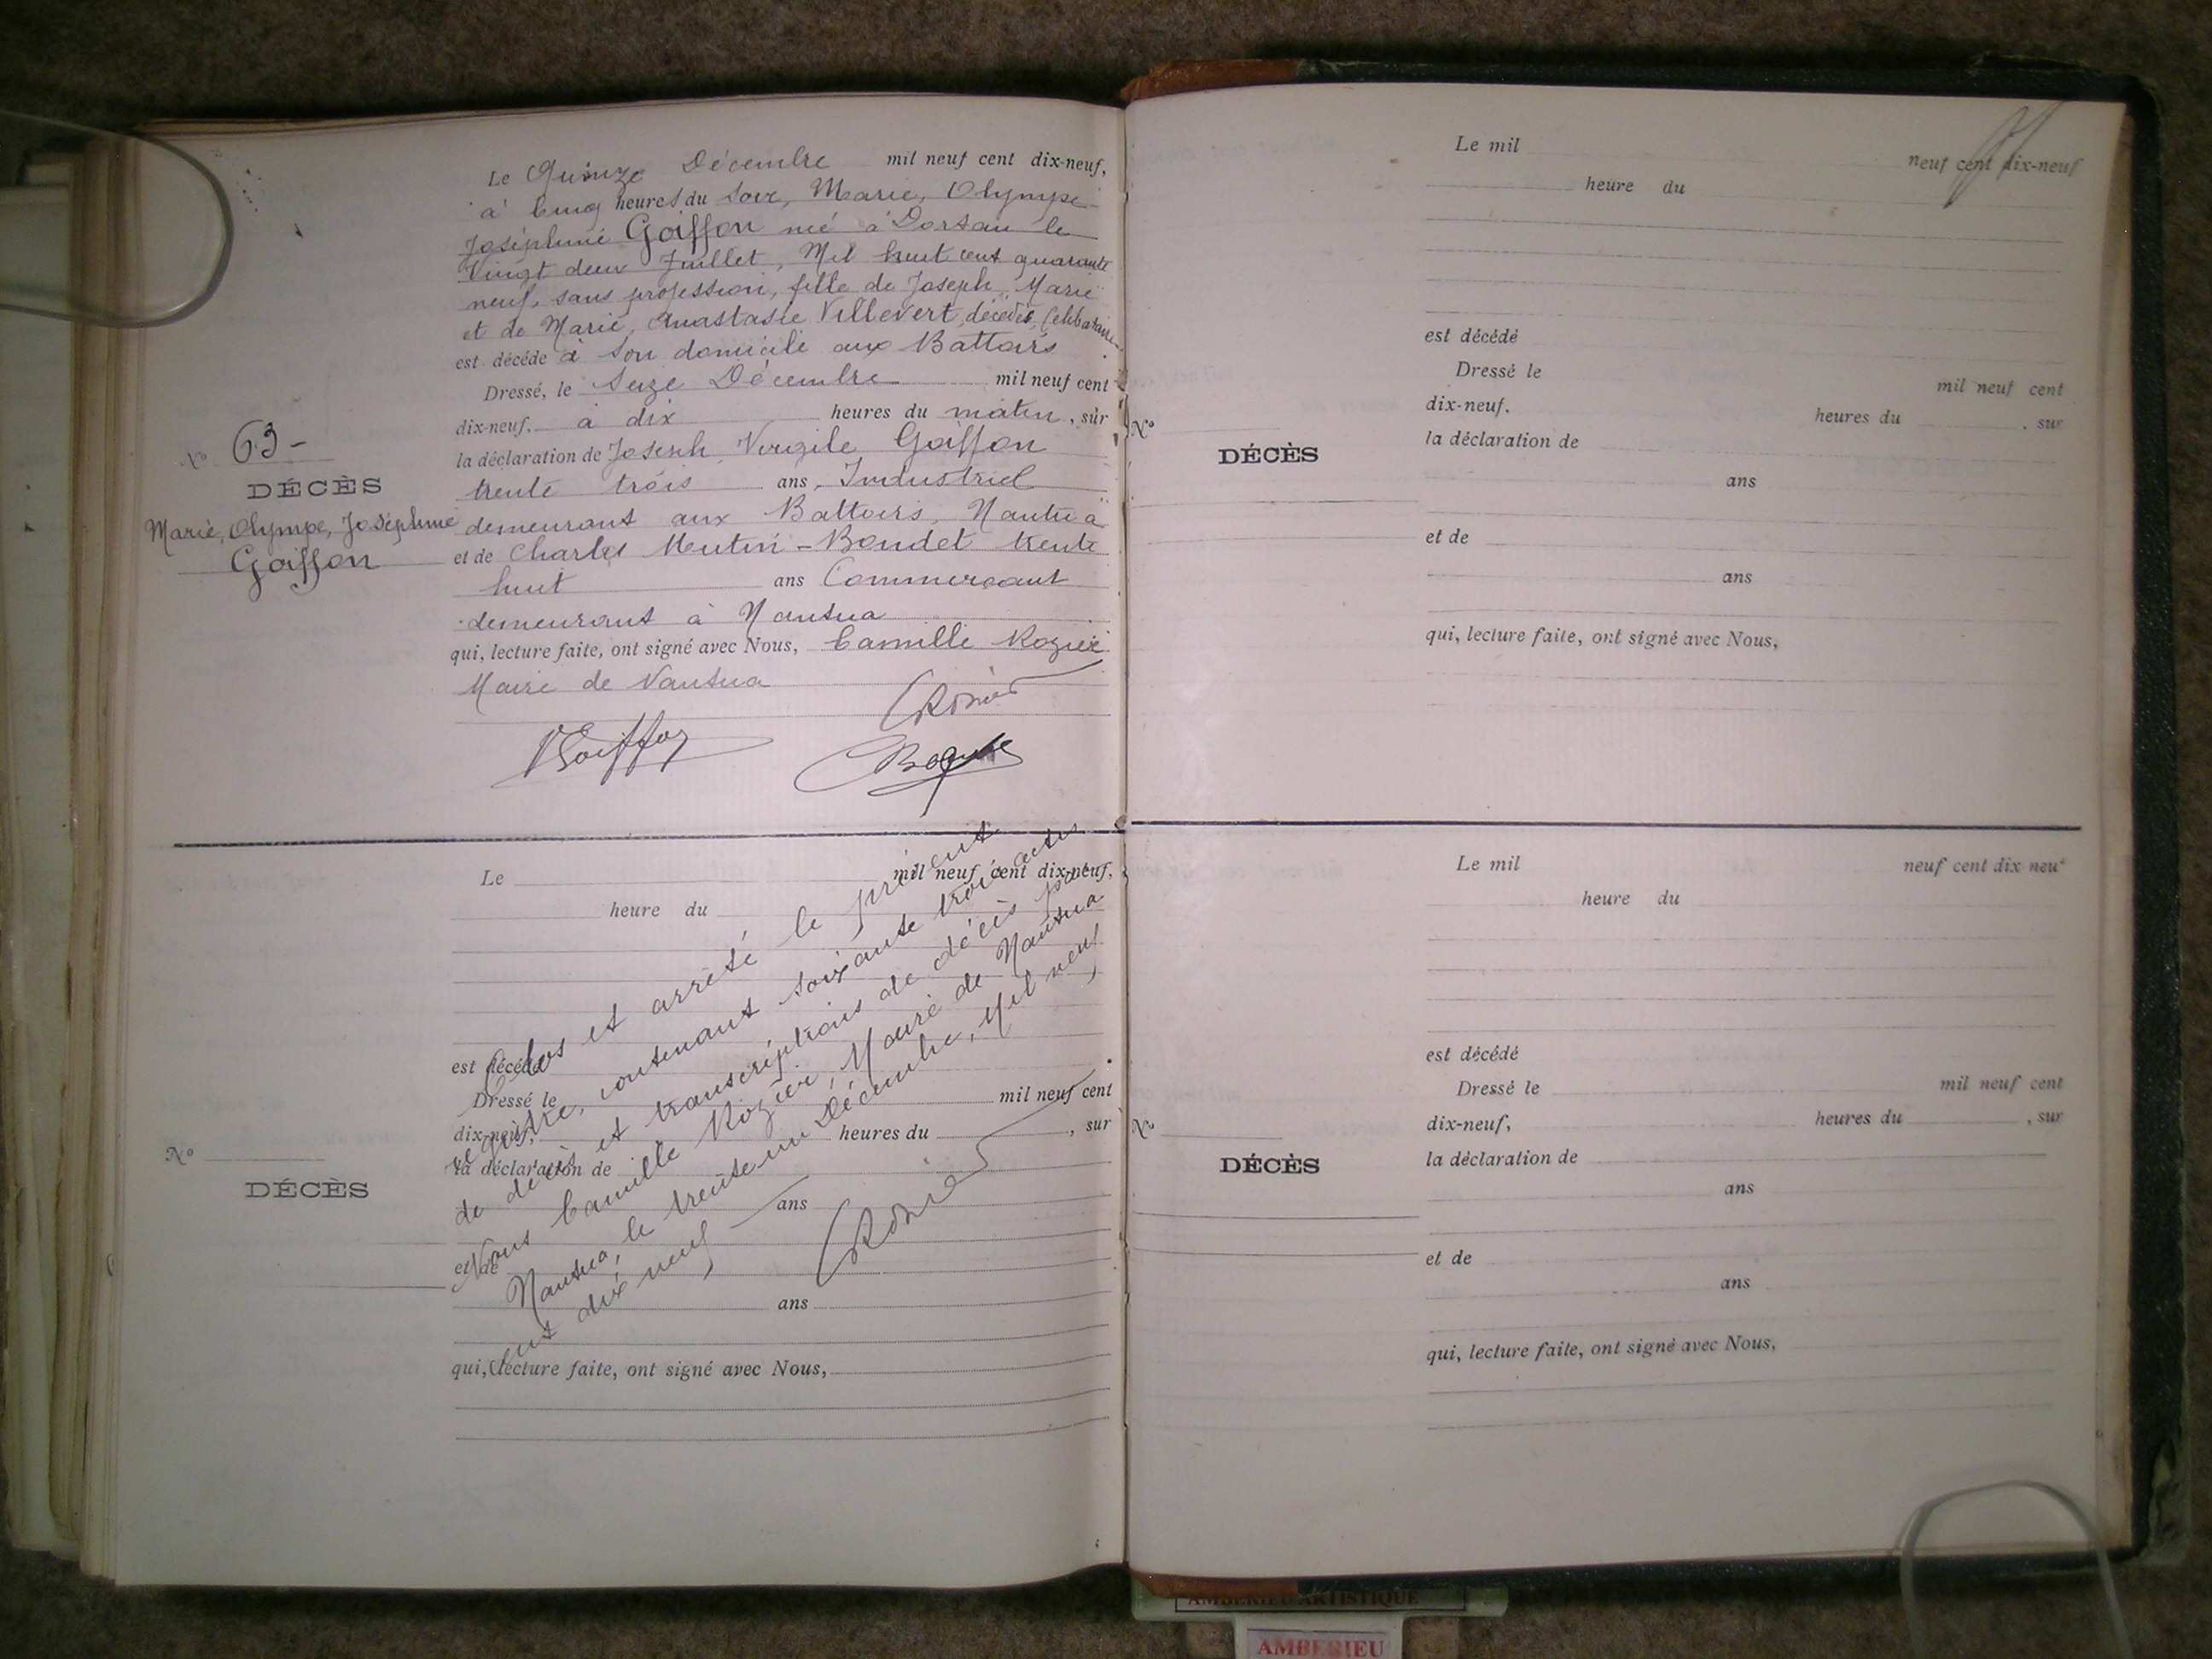 Le Quinze Décembre mil neuf cent dix-neuf,
à Cinq heures du soir, Marie, Olympe
Joséphine Goiffon née à Dortan le
Vingt deux Juillet, Mil huit cent quarante
neuf, sans profession, fille de Joseph, Marie
et de Marie, Anastasie Villevert, décédés, Célibataire
est décédé à son domicile aux Battoirs
Dressé, le Seize Décembre mil neuf cent
dix-neuf. à dix heures du matin, sur
la déclaration de Joseph, Virgile, Goiffon
trente trois ans, Industriel
demeurant aux Battoirs, Nantua
et de Charles Mutin-Boudet trente
huit ans Commerçant
demeurant à Nantua
qui, lecture faite, ont signé avec Nous, Camille Rozier
Maire de Nantua
CRozier
VGoiffon
No 63 -
DÉCÈS
Marie, Olympe, Joséphine
Goiffon
Le mil neuf cent dix-neuf,
heure du
est décédé
Dressé le mil neuf cent
dix-neuf, heures du , sur
la déclaration de
ans
et de
ans
qui, lecture faite, ont signé avec Nous,
No
DÉCÈS
Clos et arrêté le présent
registre, contenant soixante trois actes
de décès et transcriptions de décès par
Nous Camille Rozier, Maire de Nantua
Nantua, le trente un Décembre, Mil neuf
cent dix neuf
CRozier
Le mil neuf cent dix-neuf
heure du
est décédé
Dressé le mil neuf cent
dix-neuf, heures du , sur
la déclaration de
ans
et de
ans
qui, lecture faite, ont signé avec Nous,
No
DÉCÈS
Le mil neuf cent dix neuf
heure du
est décédé
Dressé le mil neuf cent
dix-neuf, heures du , sur
la déclaration de
ans
et de
ans
qui, lecture faite, ont signé avec Nous,
No
DÉCÈS
AMBERIEU ARTISTIQUE
AMBERIEU